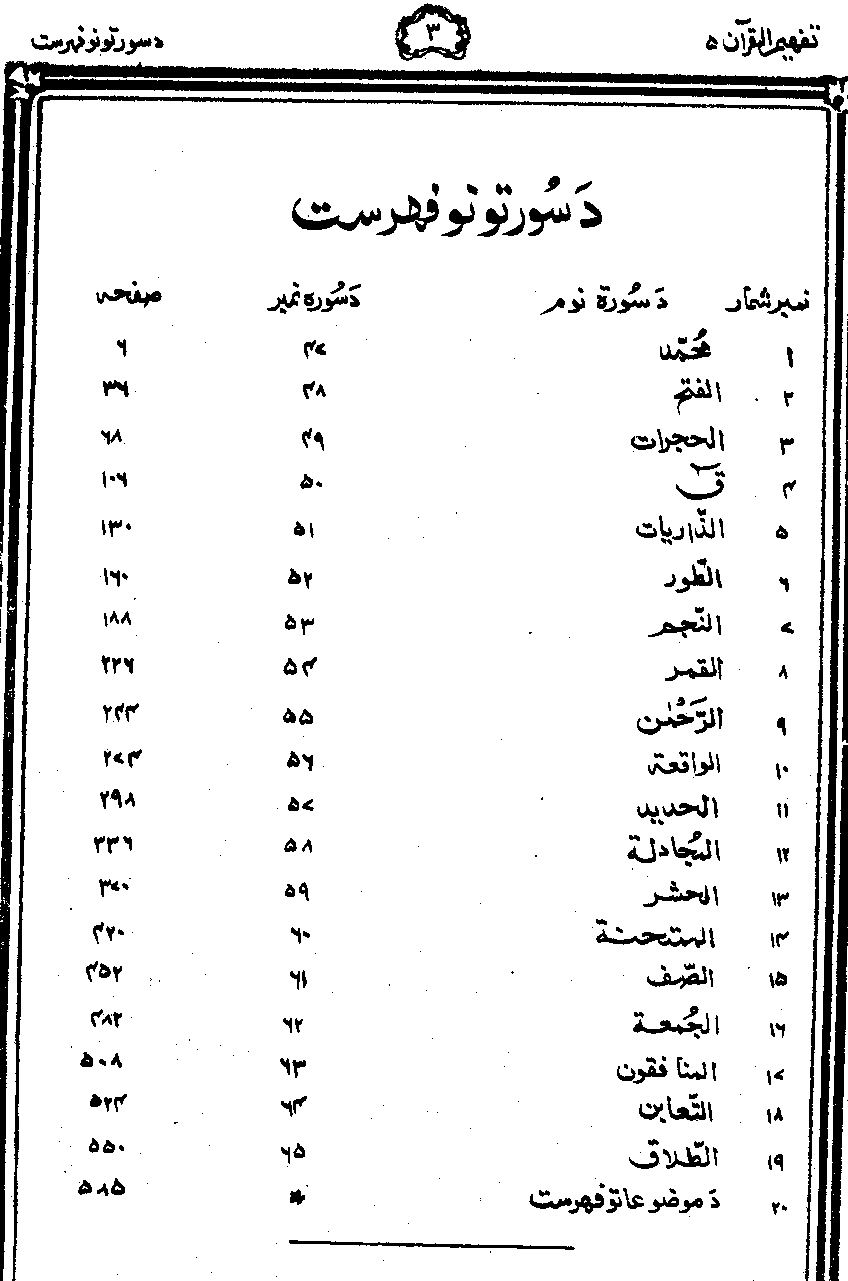 تفهيم القرآن ۵ ۳ د سورتونو فهرست
دَ سُورتونو فهرست
نمبر شمار دَ سُورة نوم دَ سُوره نمبر صفحه
۱ مُحمّد ۴۷ ۶
۲ الفتح ۴۸ ۳۶
۳ الحجرات ۴۹ ۶۸
۴ قٓ ۵۰ ۱۰۶
۵ الذّاريات ۵۱ ۱۳۰
۶ الطّور ۵۲ ۱۶۰
۷ النّجم ۵۳ ۱۸۸
۸ القمر ۵۴ ۲۲۶
۹ الرَّحْمٰن ۵۵ ۲۴۴
۱۰ الواقعة ۵۶ ۲۷۴
۱۱ الحديد ۵۷ ۲۹۸
۱۲ المُجادلة ۵۸ ۳۳۶
۱۳ الحشر ۵۹ ۳۷۰
۱۴ الممتحنة ۶۰ ۴۲۰
۱۵ الصّف ۶۱ ۴۵۲
۱۶ الجُمعة ۶۲ ۴۸۲
۱۷ المنافقون ۶۳ ۵۰۸
۱۸ التّغابن ۶۴ ۵۲۴
۱۹ الطّلاق ۶۵ ۵۵۰
۲۰ دَ موضوعاتو فهرست * ۵۸۵